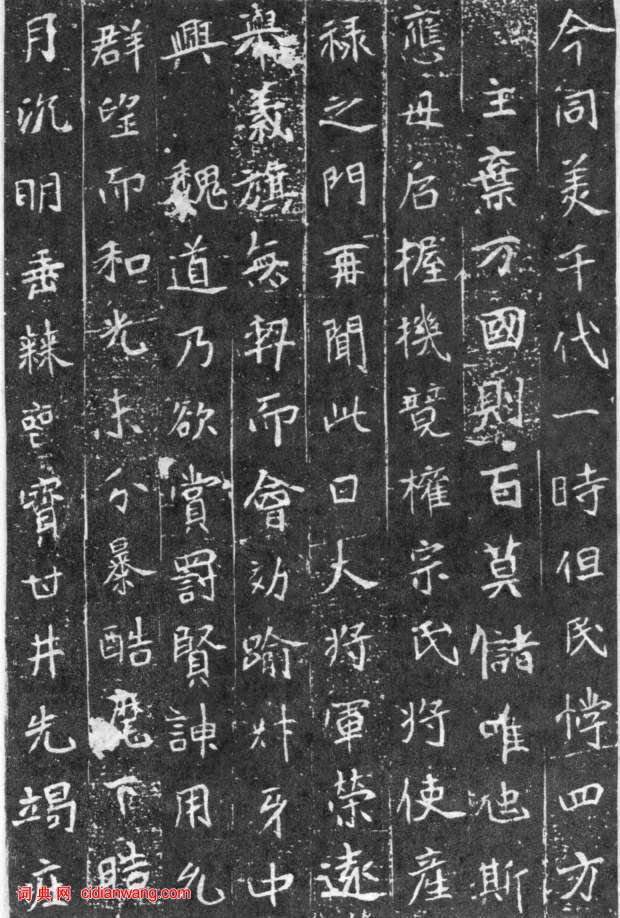 今同美千代一時但民悖四方
主棄万國則百莫儲唯虵斯
應母后握機競權宗氏将使産
禄之門再聞此日大将軍榮遠
舉義旗無契而會効踰牙中
興 魏道乃欲賞罰賢諌用允
群望而和光未分暴酷麾下晧
月沉明垂棘虧寶甘井先竭
词典网 cidianwang.com